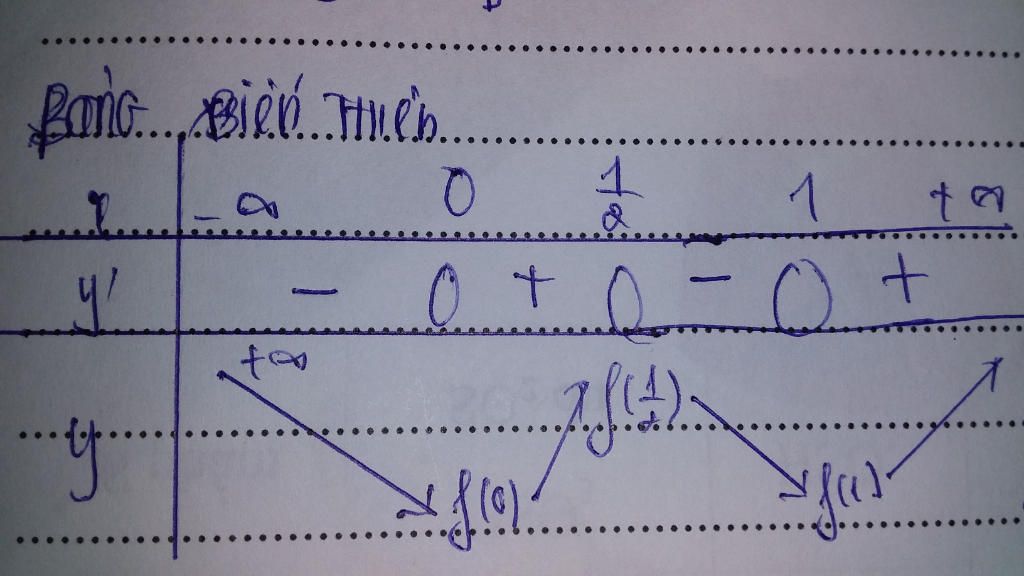 Bảng Biến Thiên
x -∞ 0 1/2 1 +∞
y' - 0 + 0 - 0 +
+∞ f(1/2)
y f(0) f(1)